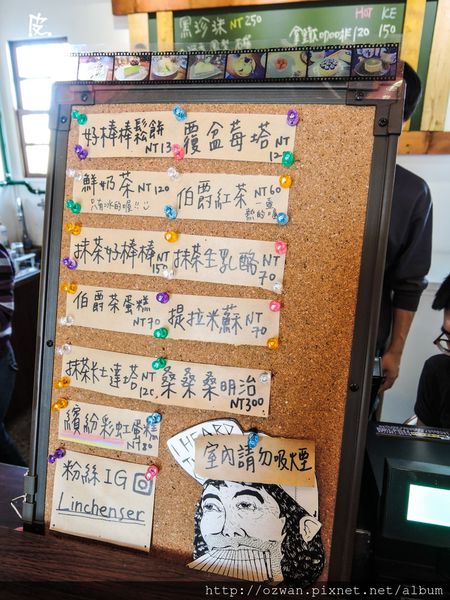 黑珍珠 NT 250
HOT ICE
拿鐵 120 150
好棒棒鬆餅
覆盆莓塔
鮮奶茶 NT 120
只有冰的喔!!
伯爵紅茶 NT 60
抹茶好棒棒 NT 150
抹茶生乳酪 NT 70
伯爵茶蛋糕 NT 70
提拉米蘇 NT 70
抹茶卡士達塔 NT
桑桑桑明治 NT 300
繽紛彩虹蛋糕 NT 80
室內請勿吸煙
粉絲IG
Linchenser
http://ozwan.pixnet.net/album